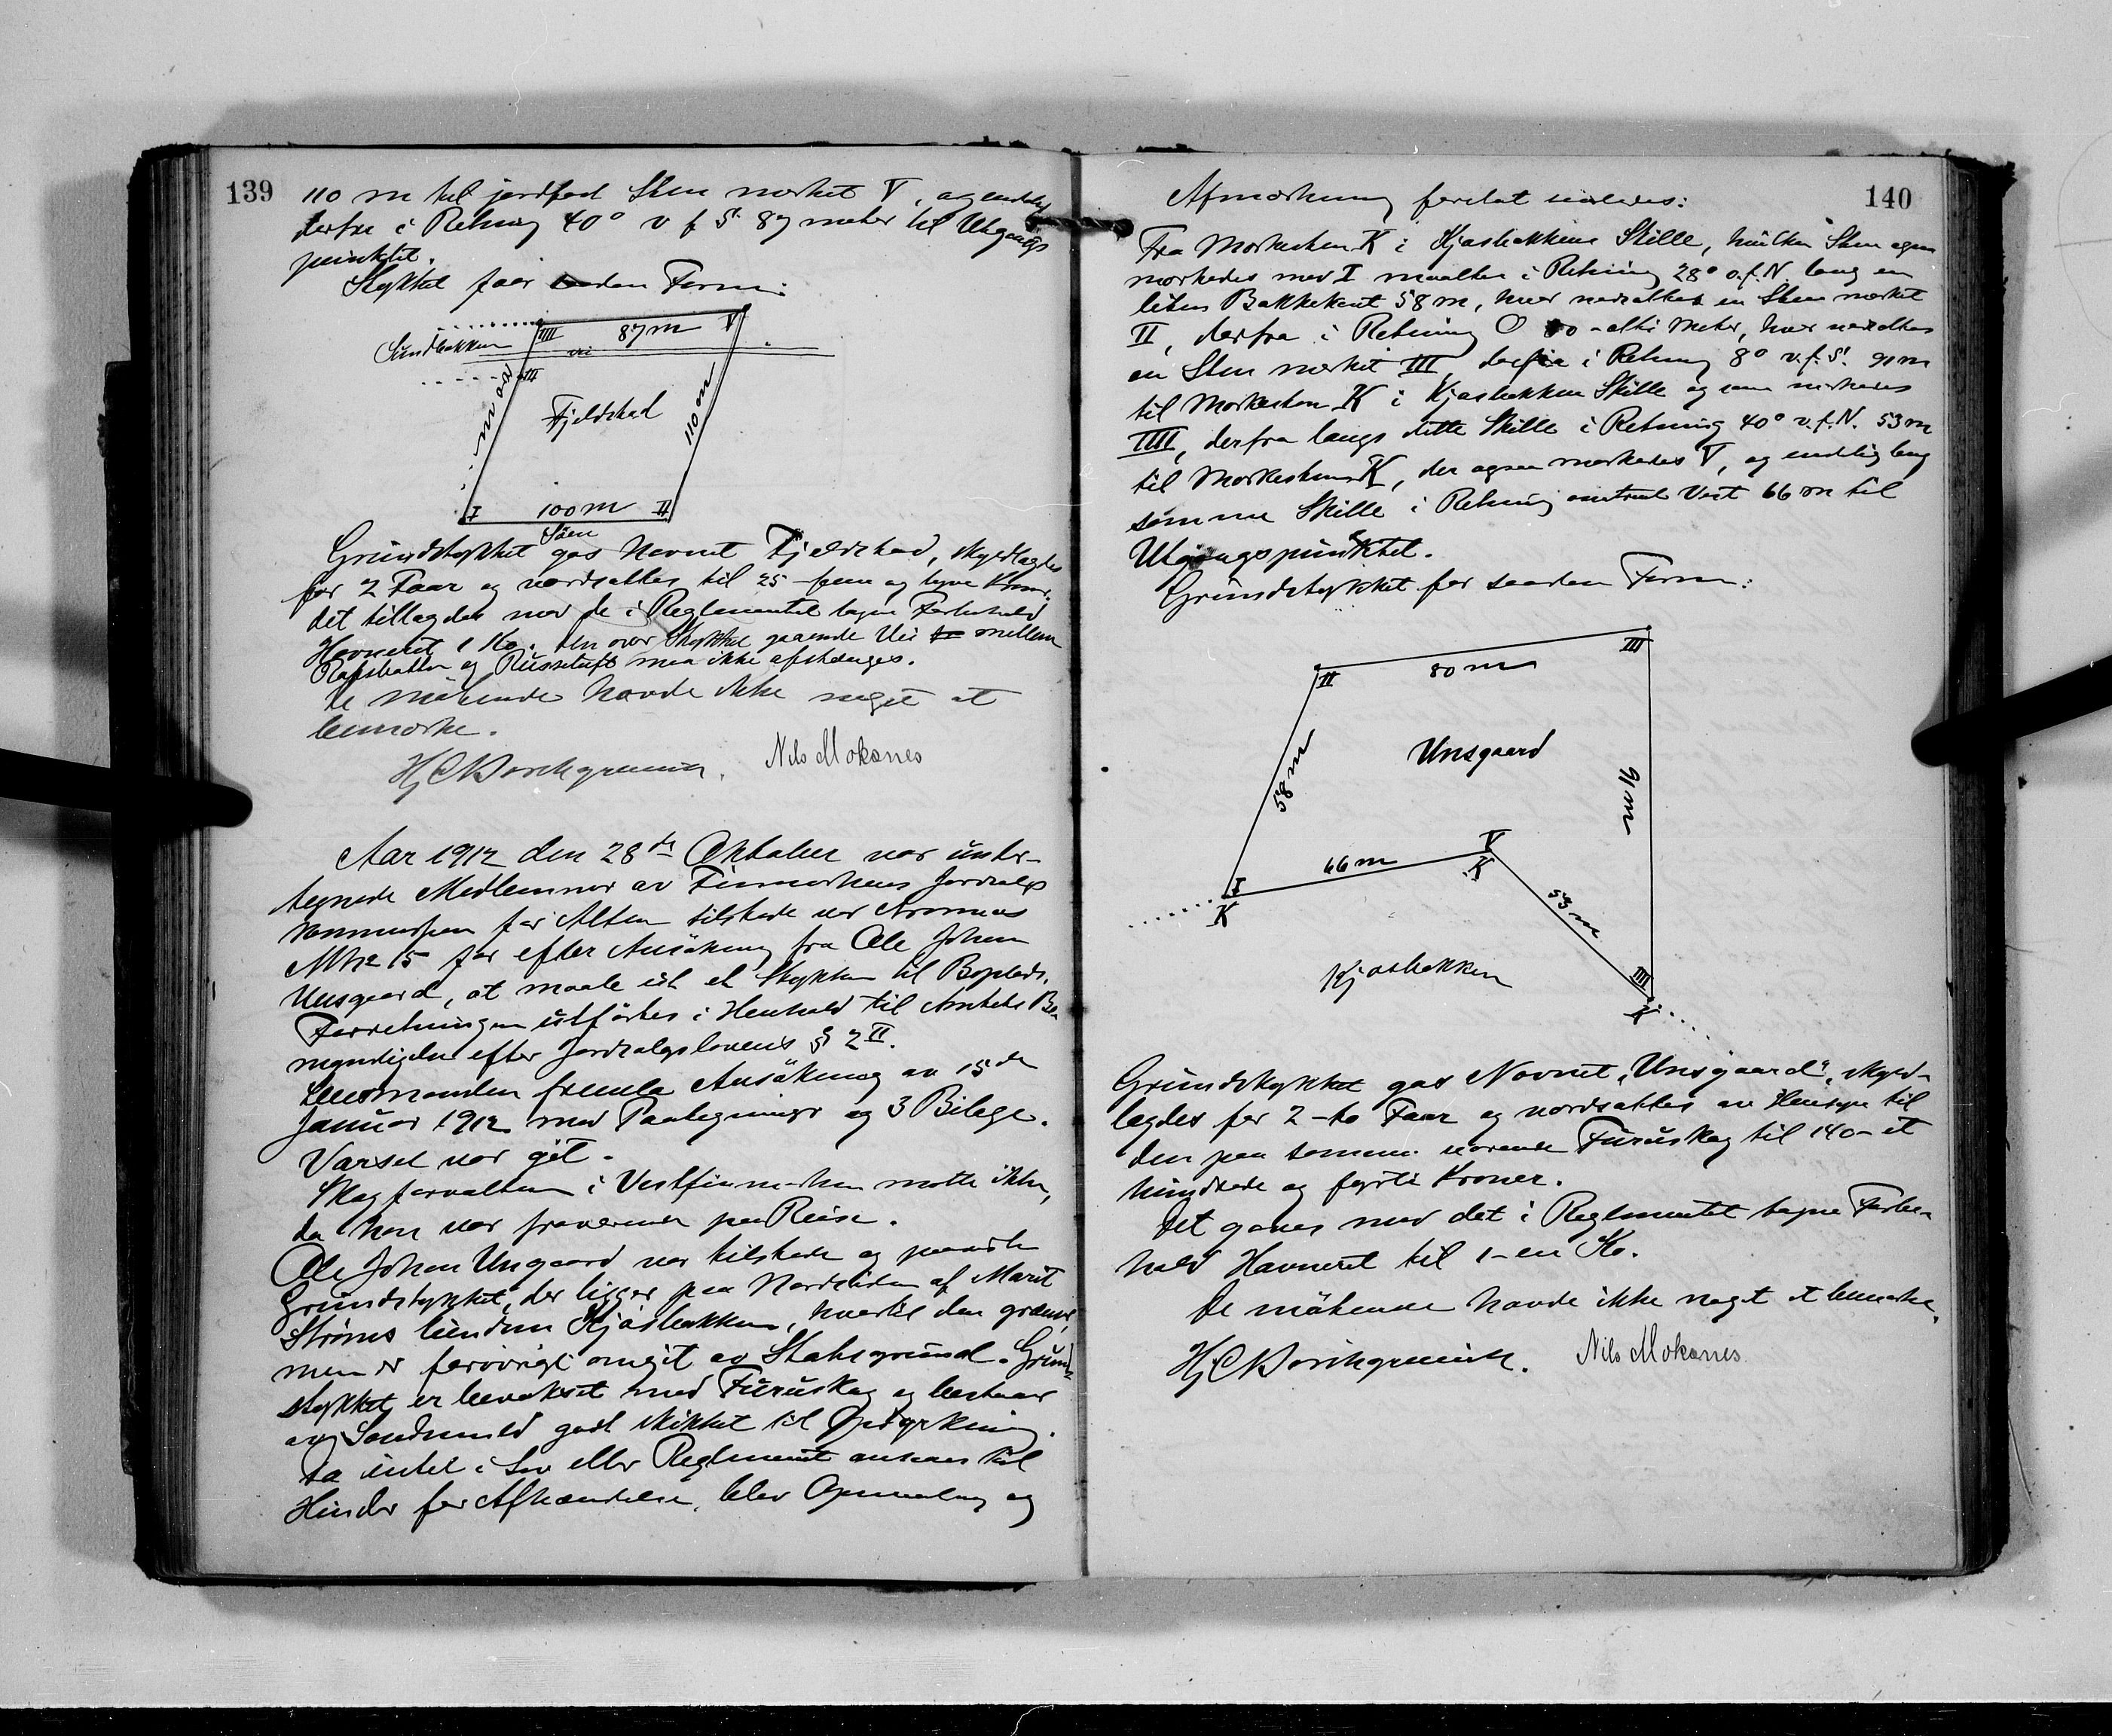 139
110 m til jordfast Sten merket V, og endelig
derfra i Retning 40° v f S. 87 meter til Utgangs
punktet.
Stykket faar saadan Form:
IIII 87 m V
Sundbakken
vei
III
Fjeldstad
110 m
I 100 m II
Grundstykket gas Navnet Fjeldstad, skyldlagdes
for 2 Faar og værdsattes til 25 - fem og tyve Kroner.
det tillagdes med de i Reglementet tagne Forbehold
Havneret 1 Ko. Den over Stykket gaaende Vei mellem
og Russeluft maa ikke afstænges.
De mötende havde ikke noget at
bemærke.
Nils Mokanes
Aar 1912 den 28de Oktober var under-
tegnede Medlemmer av Finmarkens Jordsalgs
kommission for Alten tilstede ved
Mno 15 for efter Ansökning fra Ole Johan
Unsgaard, at maale ut et Stykke til Boplads.
Forretningen utförtes i Henhold til Amtets Be
myndigelse efter Jordsalgslovens § 2 II.
Lensmanden fremla Ansökning av 15de
Januar 1912 med Paategninger og 3 Bilage.
Varsel var git.
Skogforvalteren i Vestfinmarken motte ikke,
da han var fraværende paa Reise.
Ole Johan Unsgaard var tilstede og paaviste
Grundstykket, der ligger paa Nordsiden af Marit
Ströms Eiendom Kjosbakken, hvortil den grænser,
men er forövrigt omgit av Statsgrund. Grund
stykket er bevokset med Furuskog og bestaar
av Sandmuld godt skikket til Opdyrkning.
Da intet i Lov eller Reglement ansaaes til
Hinder for Afhændelse, blev Opmaaling og
140
Afmerkning foretat saaledes:
Fra Merkesten K i Kjosbakkens Skille, hvilken Sten ogsaa
merkedes med I maaltes i Retning 28° o.f.N. langs en
liten Bakkekant 58 m, hvor nedsattes en Sten merket
II, derfra i Retning O 80 - otti Meter, hvor nedsattes
en Sten merket III, derfra i Retning 8° v.f.S. 91 m
til Merkesten K i Kjosbakkens Skille og som merkedes
IIII, derfra langs dette Skille i Retning 40° v.f.N. 53 m
til Merkesten K, der ogsaa merkedes V, og endelig langs
samme Skille i Retning omtrent Vest 66 m til
Utgangspunktet.
Grundstykket far saadan Form:
II 80 m III
58 m
Unsgaard
91 m
V
K
66 m
I
K
53 m
Kjosbakken
IIII
K
Grundstykket gas Navnet „Unsgaard“, skyld-
lagdes for 2 - to Faar og værdsattes av Hensyn til
den paa samme værende Furuskog til 140 - et
hundrede og fyrti Kroner.
Det gaves med det i Reglementet tagne Forbe-
hold Havneret til 1 - en Ko.
De mötende havde ikke noget at bemerke.
Nils Mokanes